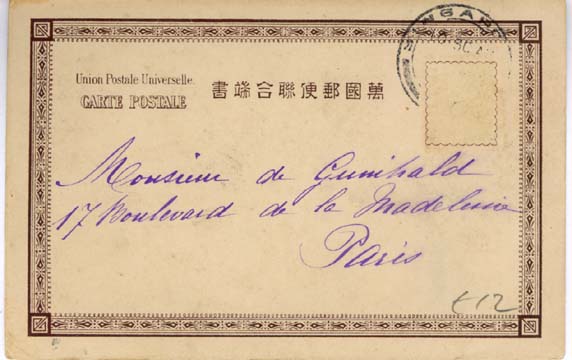 Union Postale Universelle.
CARTE POSTALE
萬國郵便聯合端書
Monsieur de
17 Boulevard de la Madeleine
Paris
£12